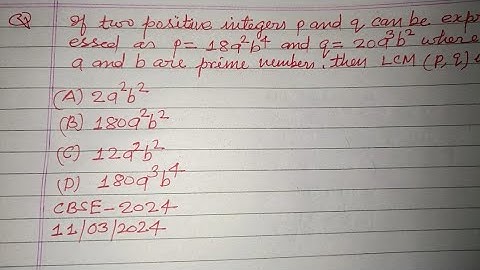 Q) If two positive integers p and q can be expr
essed as p = 18a²b⁴ and q = 20a³b² where
a and b are prime numbers. then LCM (P, q) i
(A) 2a²b²
(B) 180a²b²
(C) 12a²b²
(D) 180a³b⁴
CBSE-2024
11/03/2024